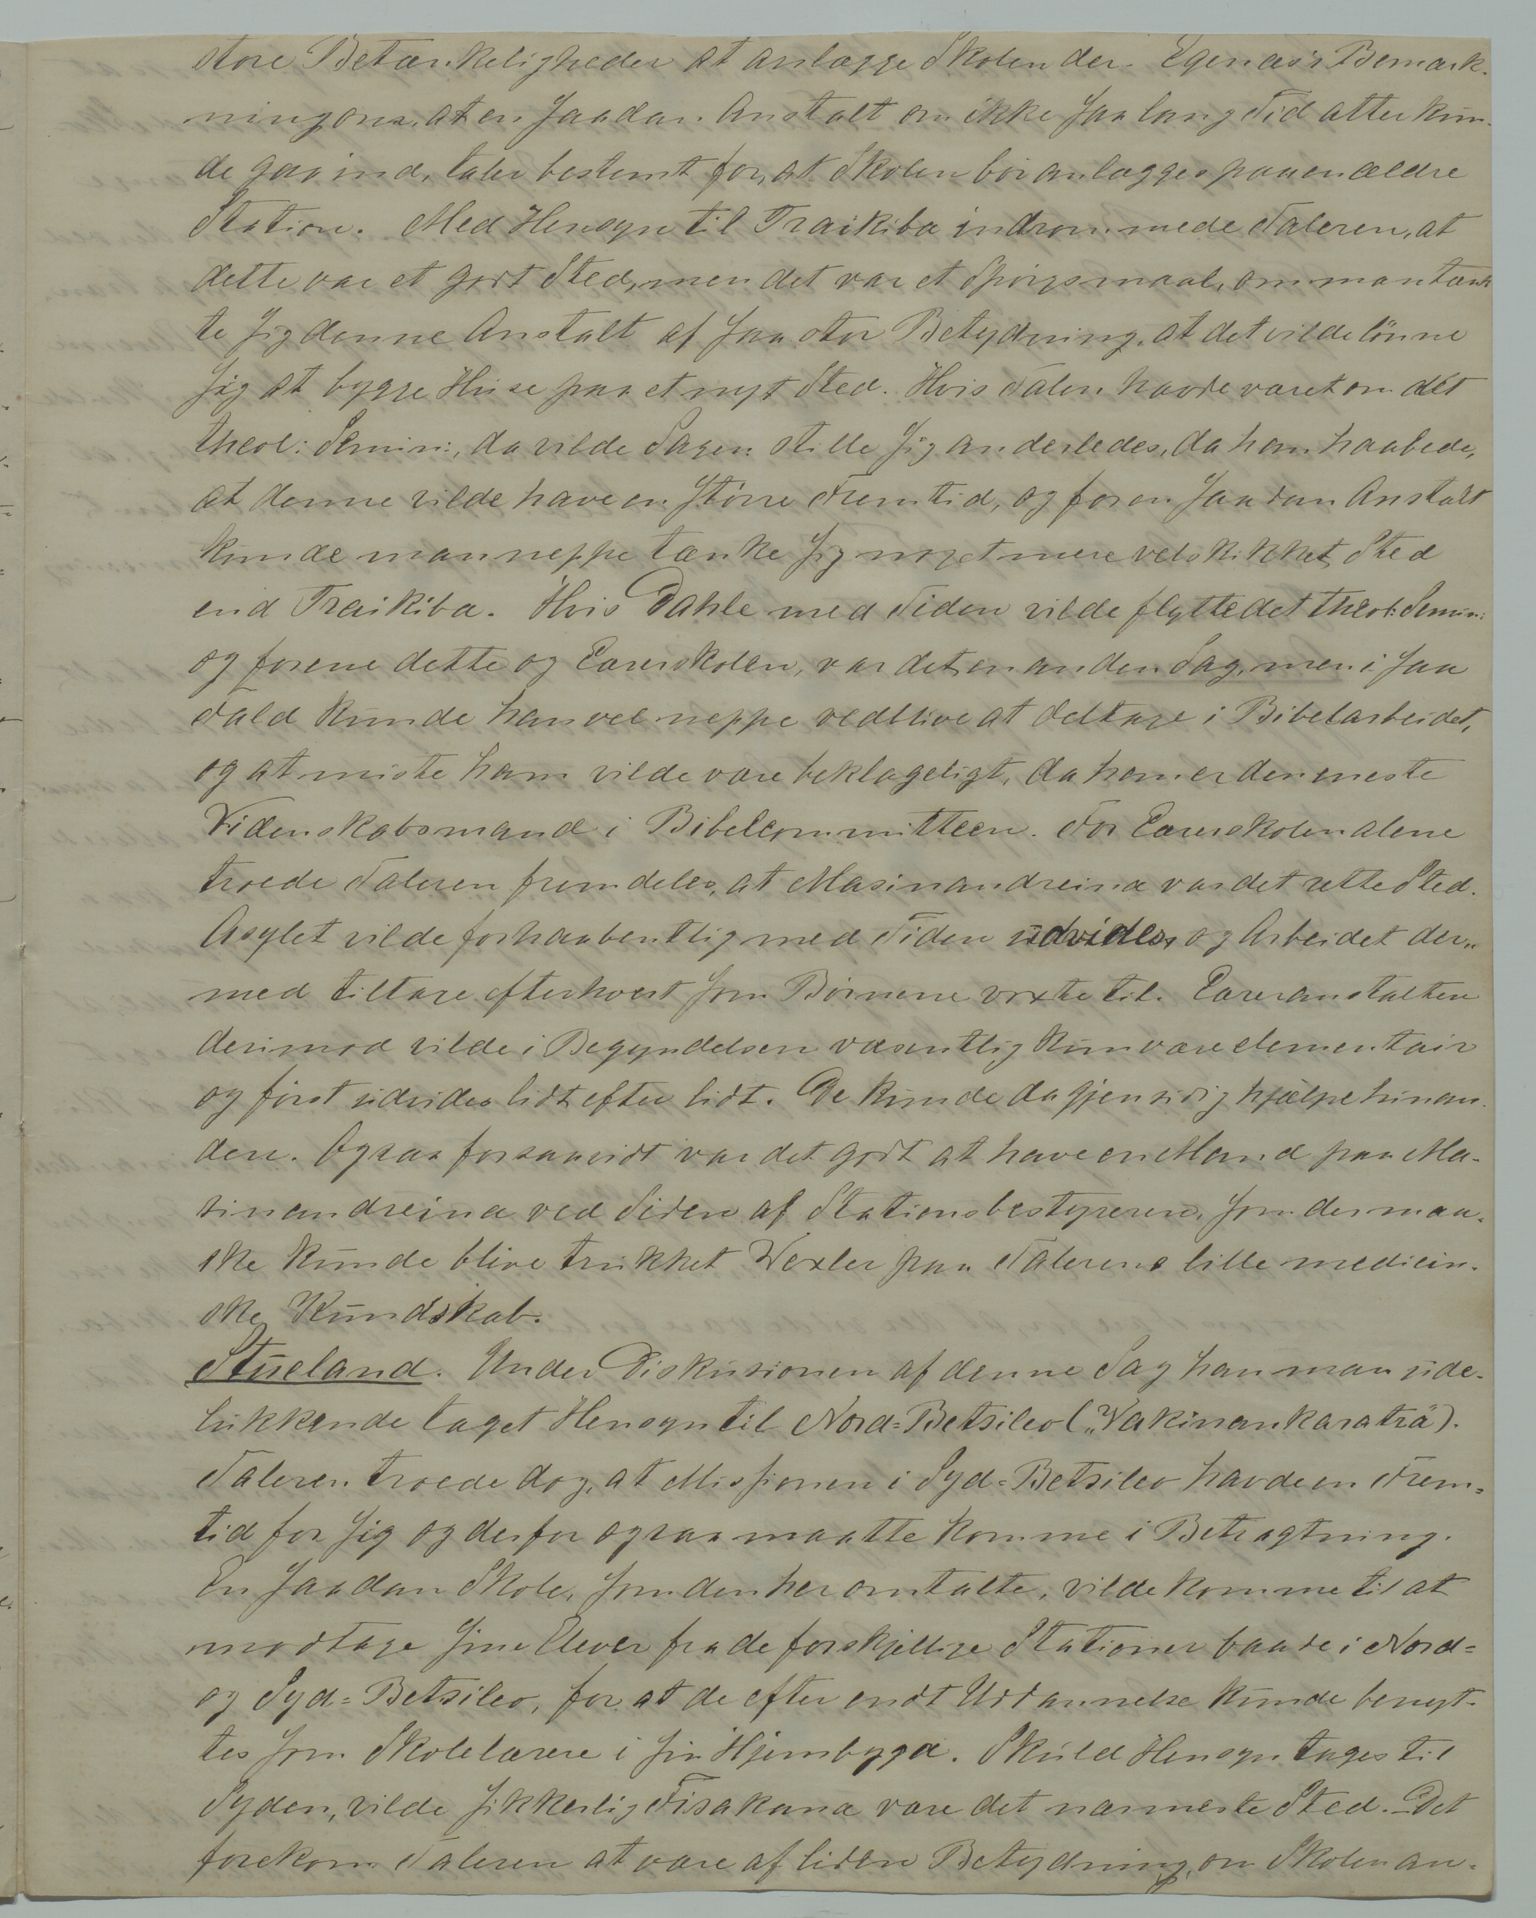 store Betænkeligheder at anlægge Skolen der. Egenæs's Bemærk-
ning om, at en saadan Anstalt om ikke saa lang Tid atter kun-
de gaa ind, taler bestemt for, at Skolen bør anlægges paa en ældre
Station. Med Hensyn til Traikiba indrømmede Taleren, at
dette var et godt Sted, men det var et Spørgsmaal, om man tænk-
te sig denne Anstalt af saa stor Betydning, at det vilde lønne
sig at bygge Huse paa et nyt Sted. Hvis Talen havde været om det
theol: Semin:, da vilde Sagen stille sig anderledes, da han haabede,
at denne vilde have en større Fremtid, og for en saadan Anstalt
kunde man neppe tænke sig noget mere velskikket Sted
end Traikiba. Hvis Dahle med Tiden vilde flytte det theol: Semin:
og forene dette og Lærerskolen, var det en anden Sag, men i saa
Fald kunde han vel neppe vedblive at deltage i Bibelarbeidet,
og at miste ham vilde være beklageligt, da han er den meste
Videnskabsmand i Bibelcommitteen. For Lærerskolen alene
troede Taleren fremdeles, at Masinandreina var det rette Sted.
Asylet vilde forhaabentlig med Tiden udvides og Arbeidet der-
med tiltage efterhvert som Børnene voxte til. Læreranstalten
derimod vilde i Begyndelsen væsentlig kun være elementair
og først udvides lidt efter lidt. De kunde da gjensidig hjælpe hinan-
den. Ogsaa forsaavidt var det godt at have en Mand paa Ma-
sinandreina ved Siden af Stationsbestyreren, som der maa-
ske kunde blive trukket Vexler paa Talerens lille medicin-
ske Kundskab.
Stueland. Under Diskusionen af denne Sag har man ude-
lukkende taget Hensyn til Nord-Betsileo („Vakinankaratra").
Taleren troede dog, at Missionen i Syd-Betsileo havde en Frem-
tid for sig og derfor ogsaa maatte komme i Betragtning.
En saadan Skole, som den her omtalte, vilde komme til at
modtage sine Elever fra de forskjellige Stationer baade i Nord-
og Syd-Betsileo, for at de efter endt Uddannelse kunde benyt-
tes som Skolelærere i sin Hjembygd. Skuld Hensyn tages til
Syden, vilde sikkerlig Fisakana være det nærmeste Sted. Det
forekom Taleren at være af liden Betydning, om Skolen an-